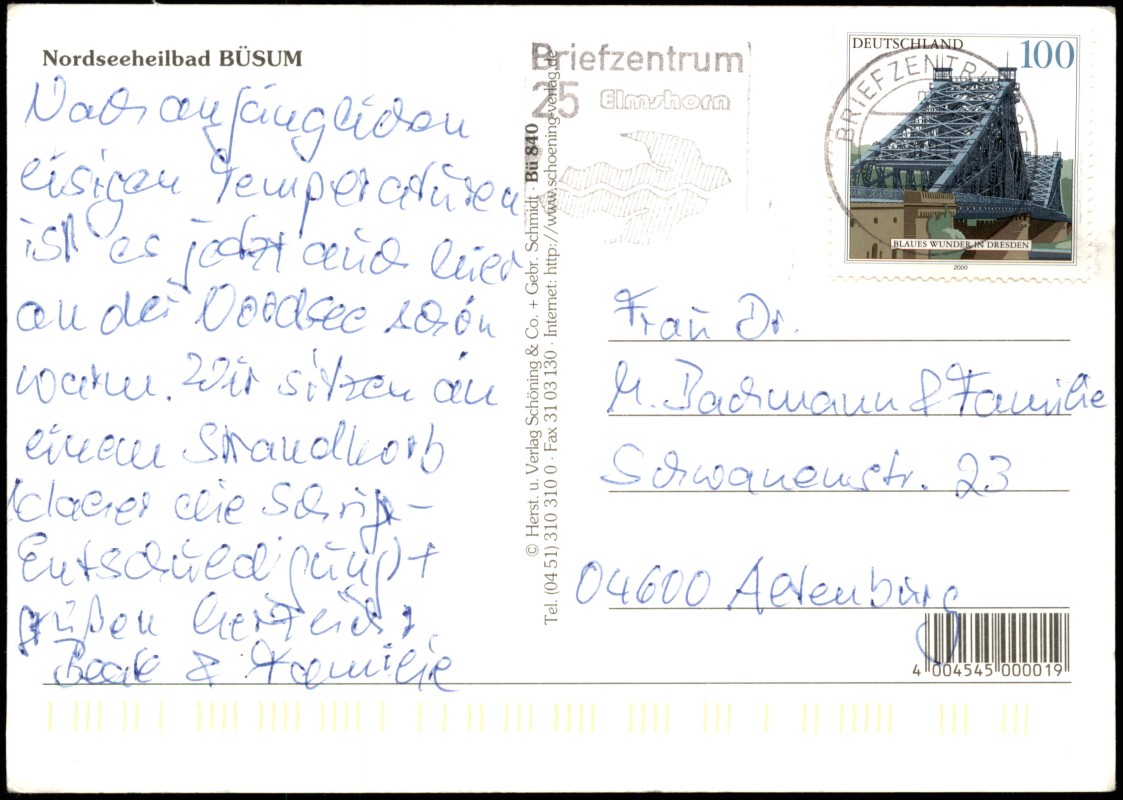 Nordseeheilbad BÜSUM
Nach anfänglichen
eisigen Temperaturen
ist es jetzt auch hier
an der Nordsee schön
warm. Wir sitzen in
einem Strandkorb
(daher die Schrift-
Entschuldigung) +
grüßen herzlich,
Beate & Familie
© Herst. u. Verlag Schöning & Co. + Gebr. Schmidt · Bü 840
Tel. (04 51) 310 310 0 · Fax 31 03 130 · Internet: http://www.schoening-verlag.de
Briefzentrum
25 Elmshorn
BRIEFZENTRUM
DEUTSCHLAND 100
BLAUES WUNDER IN DRESDEN
2000
Frau Dr.
M. Bachmann & Familie
Schwanenstr. 23
04600 Altenburg
4 004545 000019